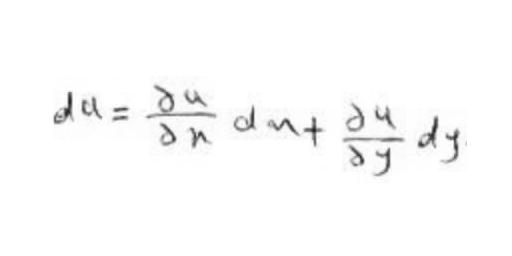 du = ∂u/∂x dx + ∂u/∂y dy.